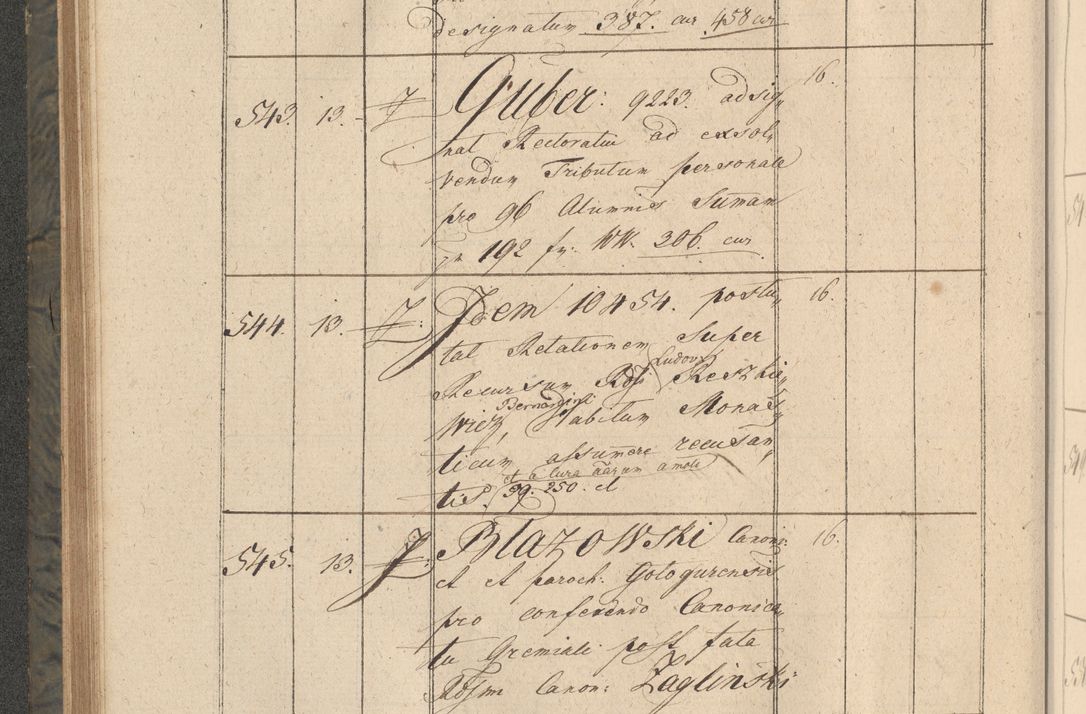 designatum 387. cur 458 cur
543. 13. Guber: 9223. adsig, 16.
nat Rectoratui ad exsol,
vendum Tributum personale
pro 96 Alumnis Summam
pr 192 fr: WW. 306. cur
544. 13. Idem 10454. postu, 16.
lat Relationem super
Recursum Rdi Ludovi Reszkie,
wicz, Bernardini Habitum Monas,
ticum assumere recusan,
et a cura aarum amoti
tis. 39. 250. et
545. 13. Blazowski Canon: 16.
et et paroch: Gologurensis
pro conferendo Canonica,
tu Gremiali post fata
Rdssmi Canon: Zaglinski